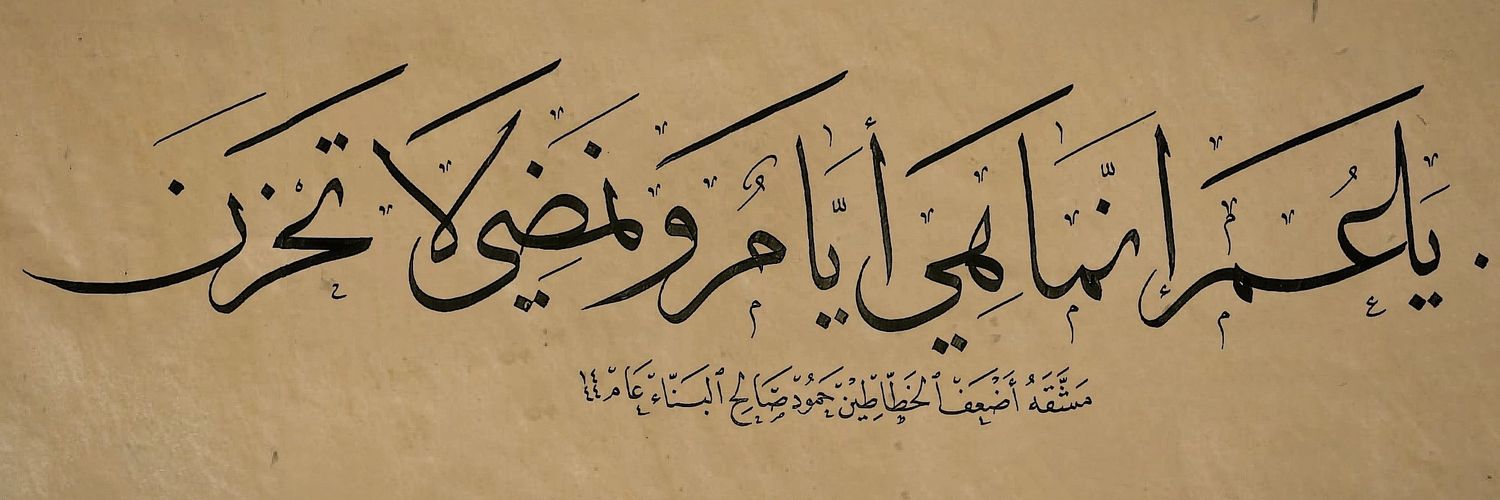 يا عُمَر إنّما هِي أيّامٌ وَنمضِي لا تحزن
مَشَقَهُ أضْعَفُ ٱلخَطّاطِيْن حَمُود صَالِح ٱلبَنّاء عَام ١٤٤